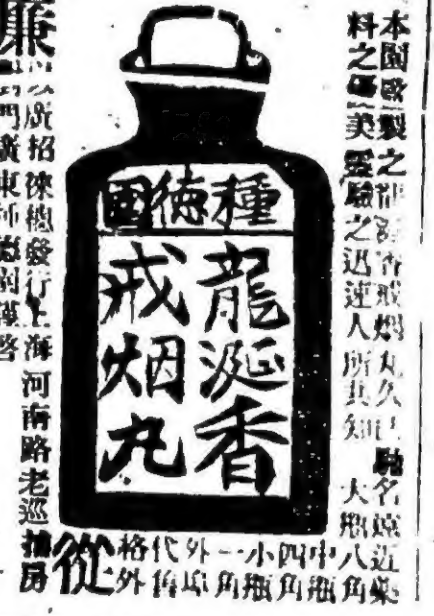 本園製之龍涎香戒烟丸久已馳名遠近藥
料之優美靈驗之迅速人所共知
大瓶八角
中瓶四角
小瓶一角
外埠代售
格外
從
廉
種德園
龍涎香
戒烟丸
廣招徠總發行上海河南路老巡捕房
門廣東